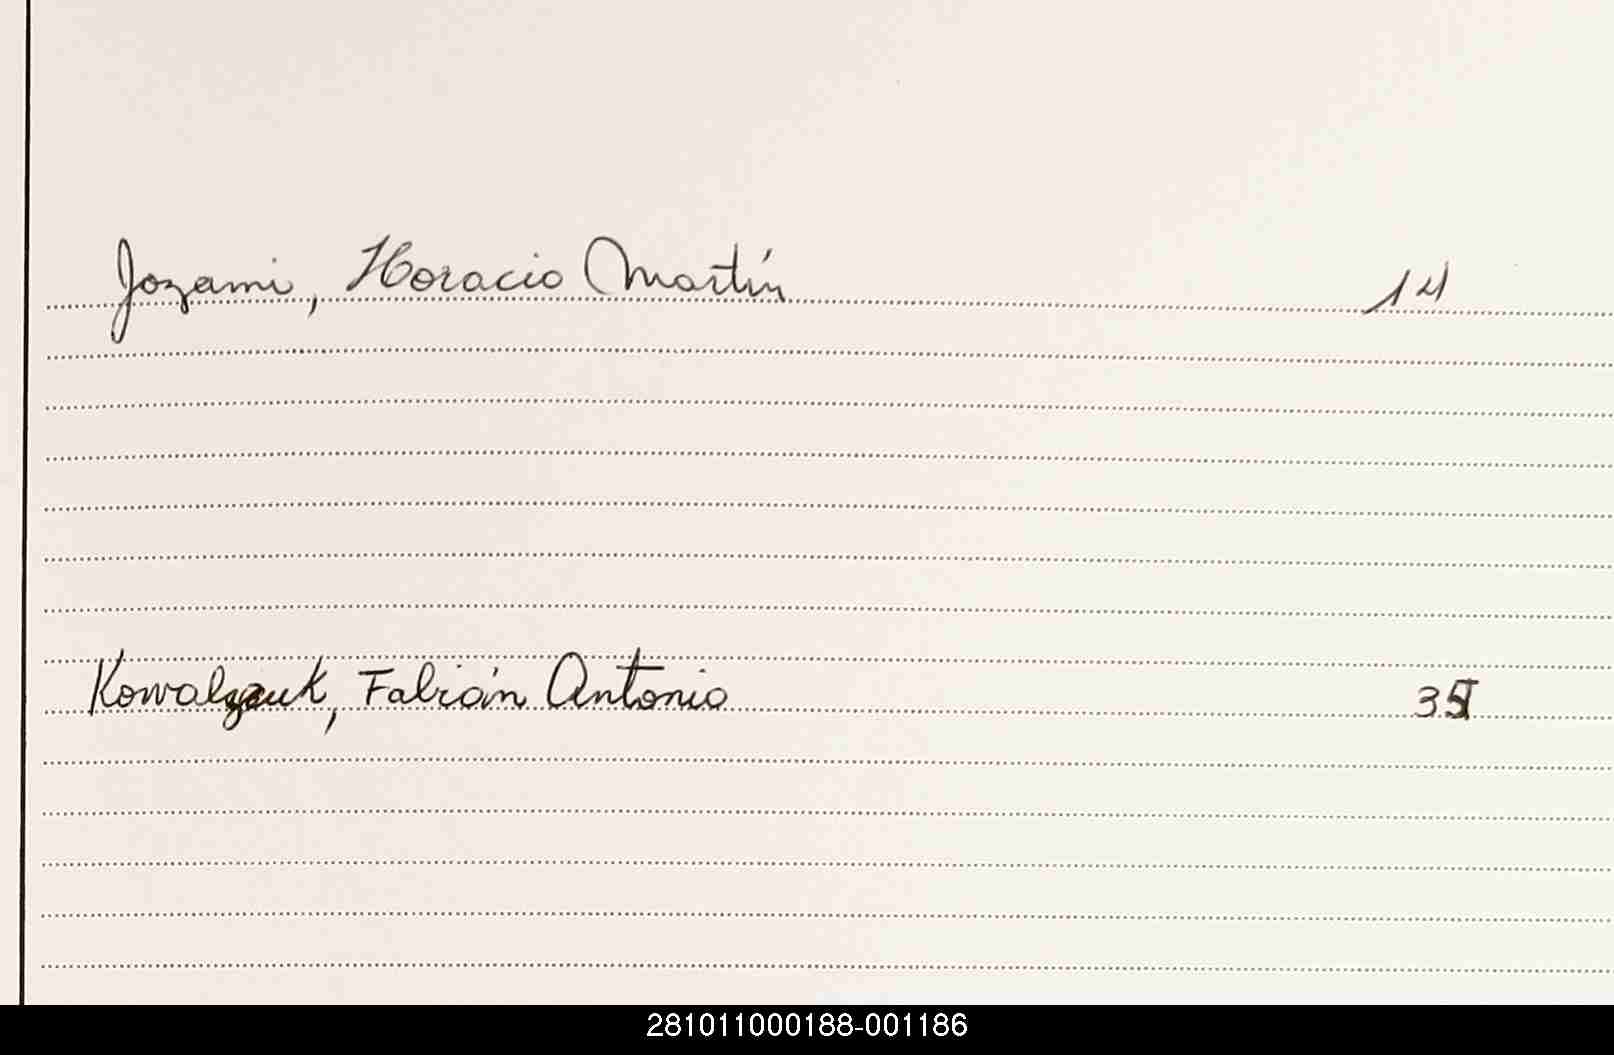 Jozami, Horacio Martín 14
Kowalzcuk, Fabián Antonio
281011000188-001186